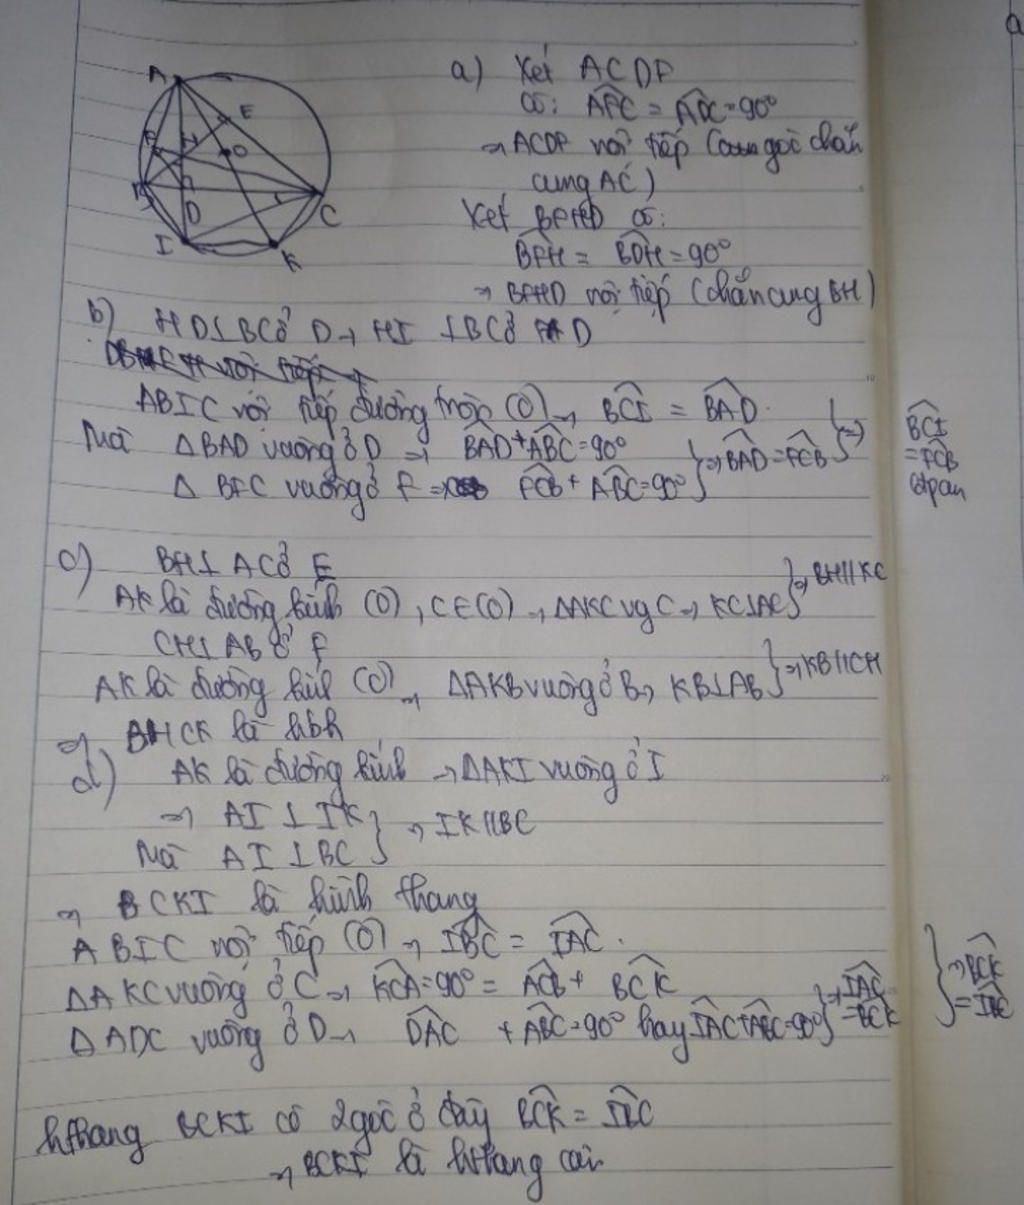 A
E
F
H
O
B
D
C
I
K
a) Xét ACDF
có: AFC = ADC = 90°
→ ACDF nội tiếp (cùng góc chắn
cung AC)
Xét BFHD có:
BFH = BDH = 90°
→ BFHD nội tiếp (chắn cung BH)
b) HD⊥BC ở D → HI ⊥BC ở D
ABIC nội tiếp đường tròn (O) → BCI = BAD.
Mà ΔBAD vuông ở D → BAD + ABC = 90°
Δ BFC vuông ở F ⇒ FCB + ABC = 90° } ⇒ BAD = FCB } ⇒ BCI
= FCB
c) BH⊥ AC ở E
AK là đường kính (O), C∈(O) → ΔAKC vg C → KC⊥AC } → BH//KC
CH⊥ AB ở F
AK là đường kính (O) → ΔAKB vuông ở B → KB⊥AB } → KB//CH
→ BHCK là hbh
d) AK là đường kính → ΔAKI vuông ở I
→ AI ⊥ IK
Mà AI ⊥ BC } → IK//BC
→ BCKI là hình thang
ABIC nội tiếp (O) → IBC = IAC.
ΔAKC vuông ở C → KCA = 90° = ACB + BCK
Δ ADC vuông ở D → DAC + ABC = 90° hay IAC + ABC = 90° } → IAC = BCK } ⇒ BCK
= IBC
hthang BCKI có 2 góc ở đáy BCK = IBC
→ BCKI là hthang cân